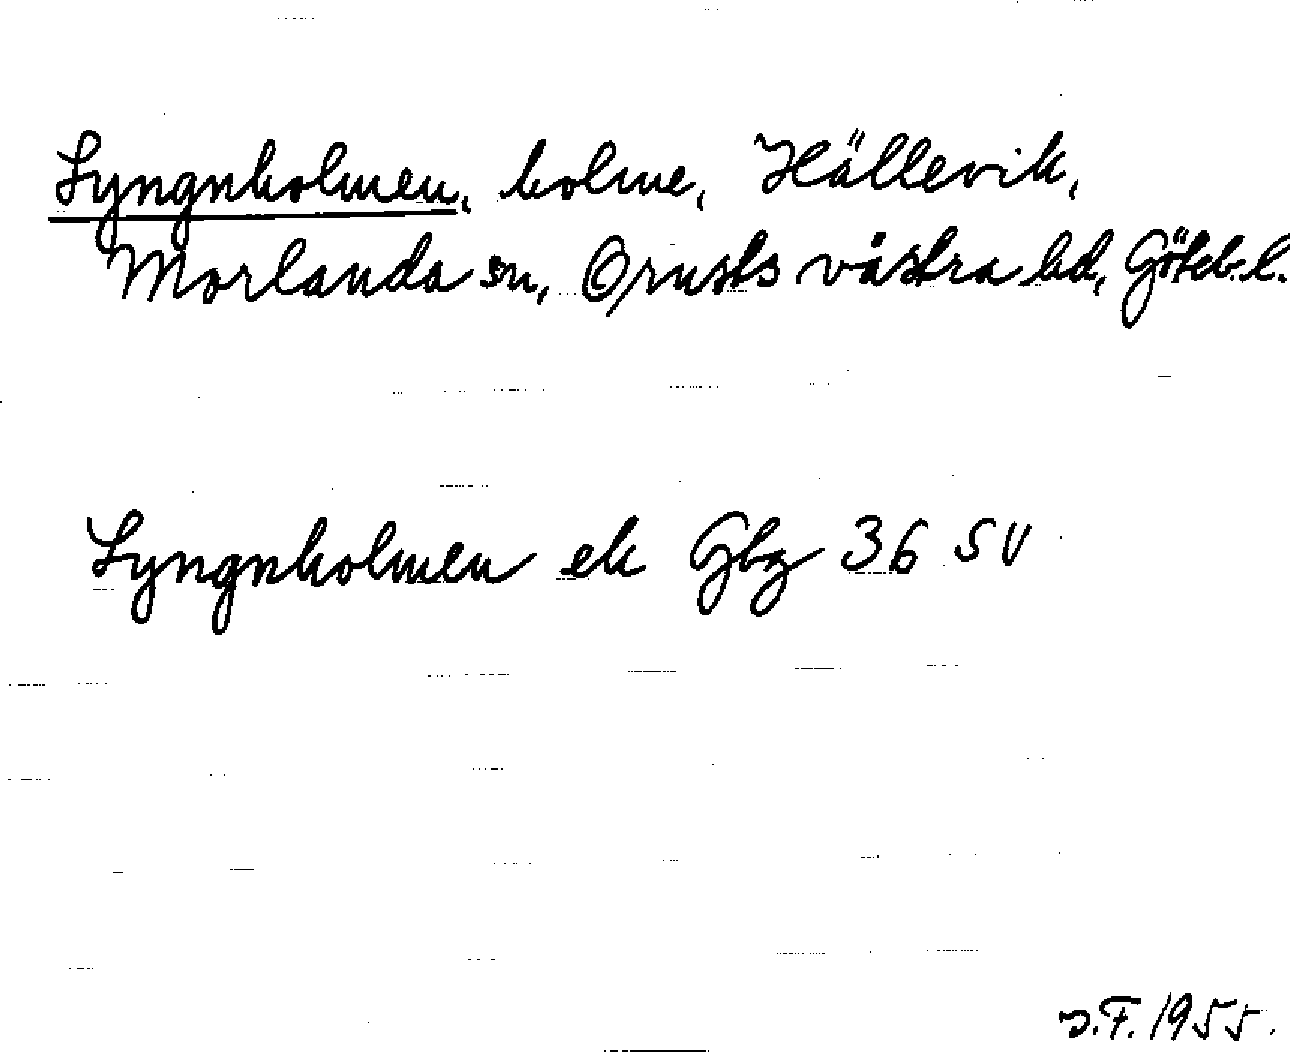 Lyngnholmen, holme, Hällevik,
Morlanda sn, Orusts västra hd, Göteb. l.
Lyngnholmen ek Gbg 36 SV
F. 1955.